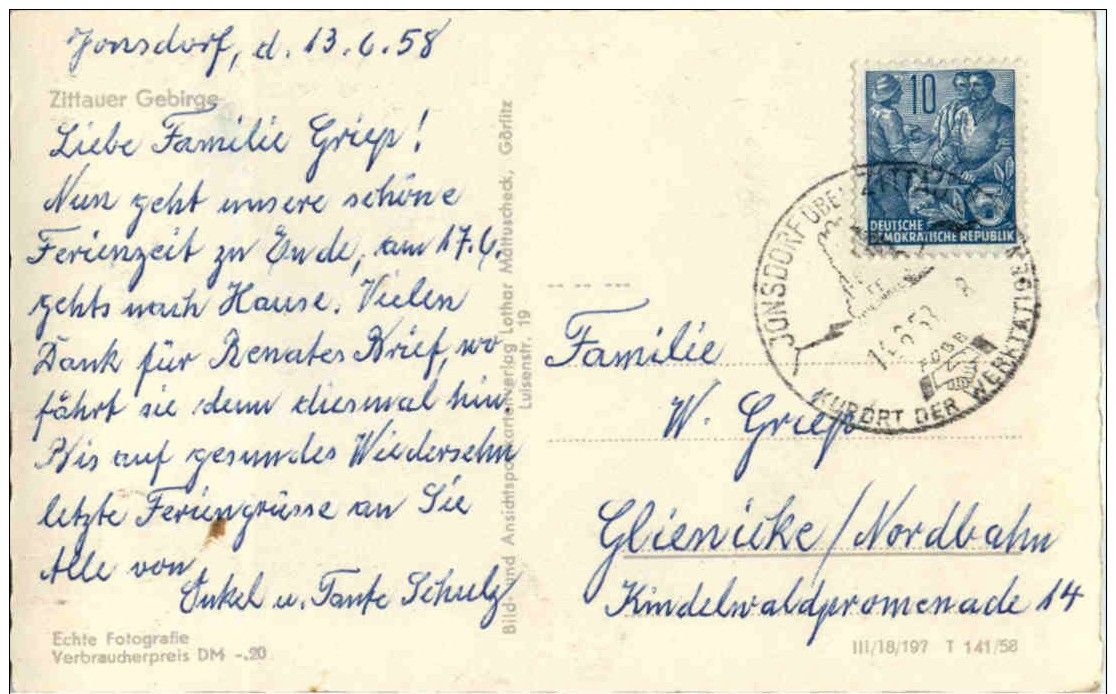 Jonsdorf, d. 13.6.58
Zittauer Gebirge
Liebe Familie Griep!
Nun geht unsere schöne
Ferienzeit zu Ende, am 17.6.
gehts nach Hause. Vielen
Dank für Renates Brief, wo
fährt sie denn diesmal hin
Bis auf gesundes Wiedersehn
letzte Feriengrüsse an Sie
Alle von
Onkel u. Tante Schulz
Echte Fotografie
Verbraucherpreis DM -.20
Bild- und Ansichtspostkartenverlag Lothar Mättuscheck, Görlitz
Luisenstr. 19
10
DEUTSCHE
DEMOKRATISCHE REPUBLIK
JONSDORF ÜBER ZITTAU
KURORT DER WERKTÄTIGEN
FDGB
Familie
W. Griep
Glienicke/Nordbahn
Kindelwaldpromenade 14
III/18/197 T 141/58